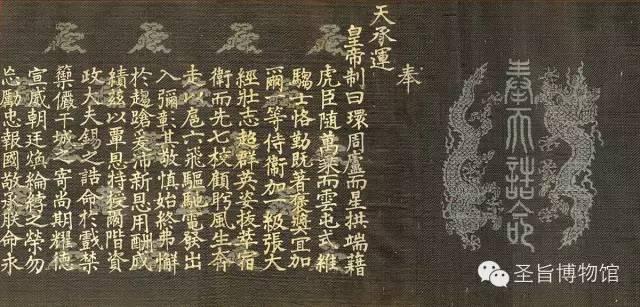 奉天誥命
奉
天承運
皇帝制曰環周廬而星拱端藉
虎臣随萬乘而雲屯式維
騶士恪勤既著褒奬宜加
爾二等侍衛加一級張大
經壯志超群英姿拔萃宿
衛而先七校顧眄風生奔
走以扈六飛驅馳電發出
入彌彰其敬慎始終弗懈
於趨蹌爰沛新恩用酬成
績茲以覃恩特授爾階資
政大夫錫之誥命於戲禁
籞儼干城之寄尚期耀德
宣威朝廷煥綸綍之榮勿
忘勵忠報國敬承朕命永
圣旨博物馆